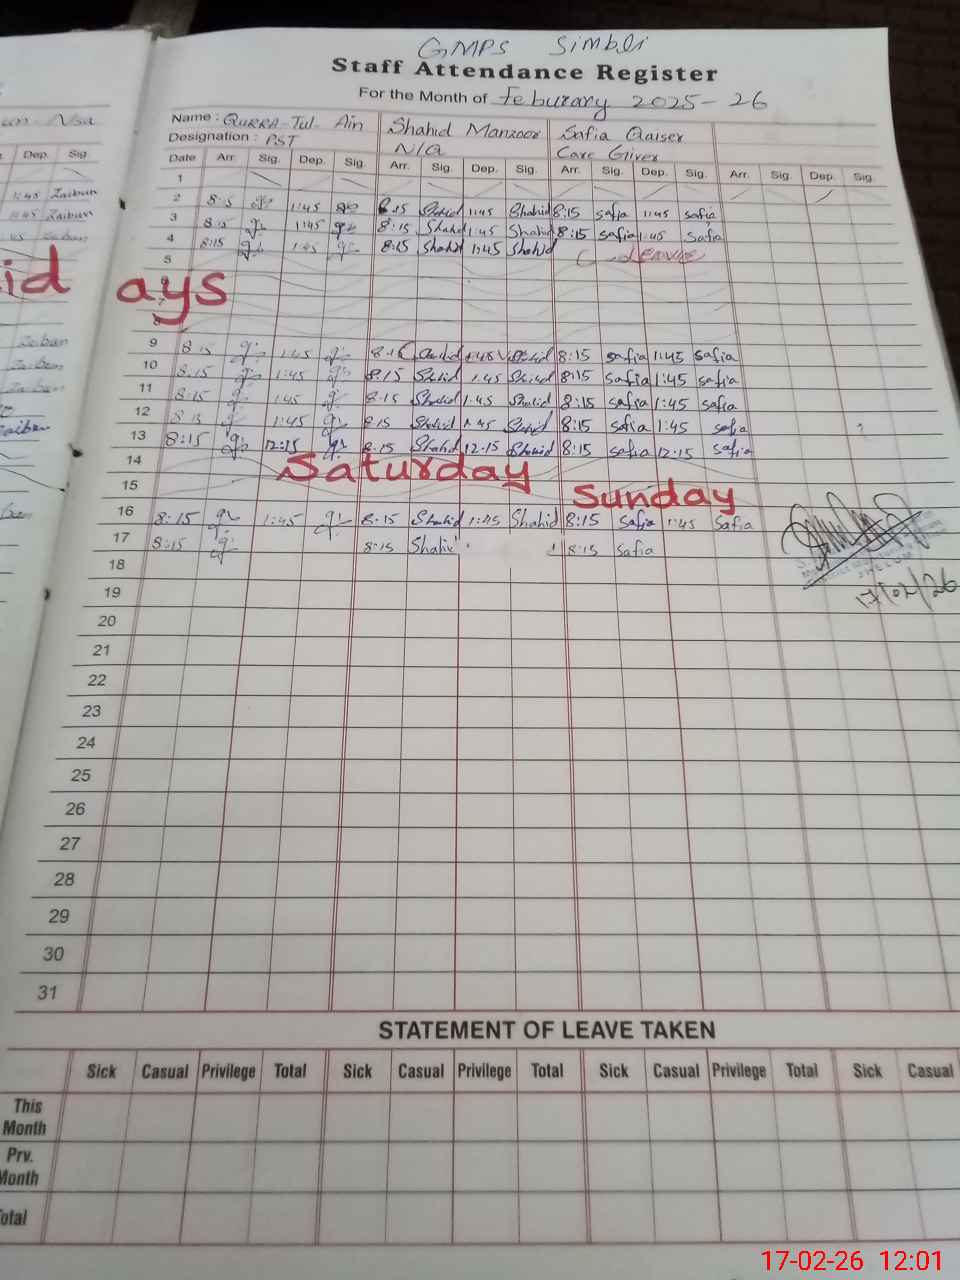 GMPS Simbli
Staff Attendance Register
For the Month of Feburary 2025-26
Name : QURRA-Tul-Ain Shahid Manzoor Safia Qaiser
Designation : PST N/A Care Giver
Dep. Sig.
Date Arr. Sig. Dep. Sig. Arr. Sig. Dep. Sig. Arr. Sig. Dep. Sig. Arr. Sig. Dep. Sig.
1
1:45 Zaibun
2 8:15 1:45 8:15 Shahid 1:45 Shahid 8:15 safia 1:45 safia
1:45 Zaibun
3 8:15 1:45 8:15 Shahid 1:45 Shahid 8:15 safia 1:45 Safia
4 8:15 1:45 8:15 Shahid 1:45 Shahid C-LEAVE
5
id ays
8
9 8:15 1:45 8:15 1:45 Shahid 8:15 safia 1:45 safia
Zaibun
10 8:15 1:45 8:15 Shahid 1:45 Shahid 8:15 safia 1:45 safia
Zaibun
11 8:15 1:45 8:15 Shahid 1:45 Shahid 8:15 safia 1:45 safia
Zaibun
12 8:15 1:45 8:15 Shahid 1:45 Shahid 8:15 safia 1:45 safia
Zaibun
13 8:15 12:15 8:15 Shahid 12:15 Shahid 8:15 safia 12:15 safia
14 Saturday
15 Sunday
16 8:15 1:45 8:15 Shahid 1:45 Shahid 8:15 Safia 1:45 Safia
17 8:15 8:15 Shahid 8:15 Safia
18
17/02/26
19
20
21
22
23
24
25
26
27
28
29
30
31
STATEMENT OF LEAVE TAKEN
Sick Casual Privilege Total Sick Casual Privilege Total Sick Casual Privilege Total Sick Casual
This
Month
Prv.
Month
Total
17-02-26 12:01